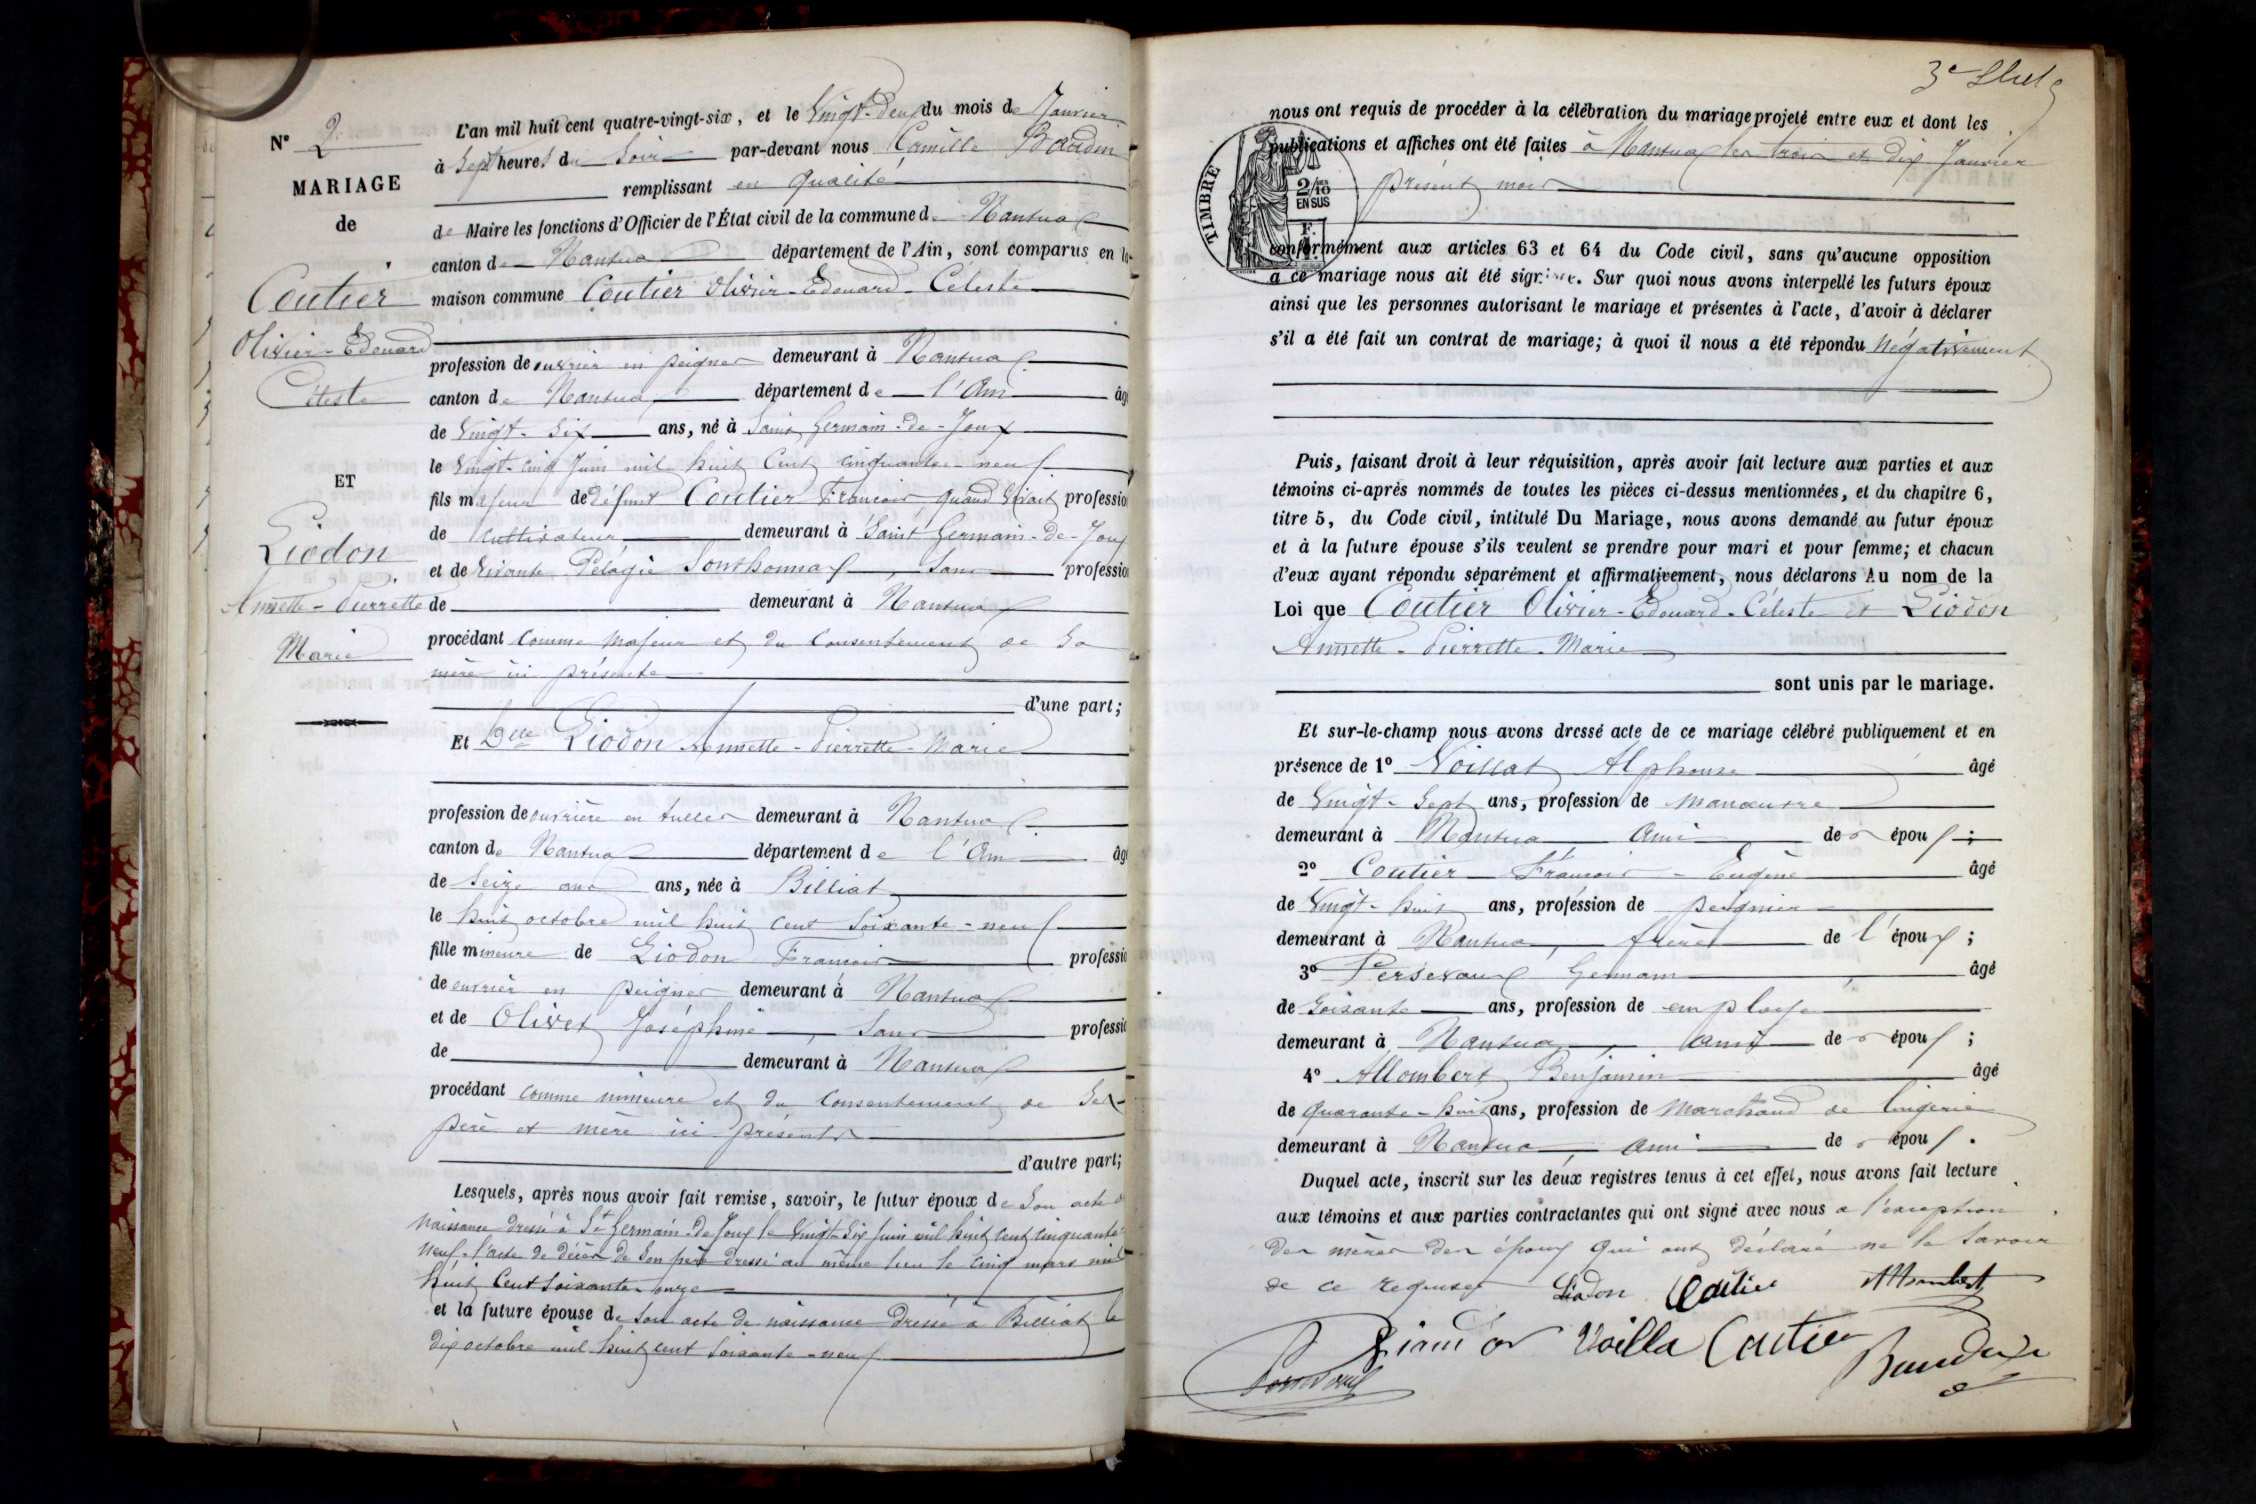 N° 2
MARIAGE
de
Coutier
Olivier-Edouard
Céleste
ET
Liodon
Annette-Pierrette
Marie
L'an mil huit cent quatre-vingt-six, et le Vingt-deux du mois de Janvier
à Sept heures du Soir par-devant nous Camille Baudin
remplissant en qualité
de Maire les fonctions d'Officier de l'État civil de la commune de Nantua
canton de Nantua département de l'Ain, sont comparus en la
maison commune Coutier Olivier-Edouard-Céleste
profession de ouvrier en peignes demeurant à Nantua
canton de Nantua département de l'Ain âgé
de Vingt-Six ans, né à Saint Germain-de-Joux
le Vingt-cinq Juin mil huit Cent cinquante-neuf
fils majeur de défunt Coutier François quand vivait profession
de cultivateur demeurant à Saint Germain-de-Joux
et de vivante Pélagie Sonthonnax, Sans profession
de demeurant à Nantua
procédant comme majeur et du Consentement de Sa
mère ici présente
d'une part;
Et Dlle Liodon Annette-Pierrette-Marie
profession de ouvrière en tulles demeurant à Nantua
canton de Nantua département de l'Ain âgé
de Seize ans ans, née à Billiat
le huit octobre mil huit cent Soixante-neuf
fille mineure de Liodon François profession
de ouvrier en peignes demeurant à Nantua
et de Olivet Joséphine, Sans profession
de demeurant à Nantua
procédant comme mineure et du Consentement de Ses
père et mère ici présents
d'autre part;
Lesquels, après nous avoir fait remise, savoir, le futur époux de Son acte de
Naissance dressé à St Germain-de-Joux le Vingt-Six Juin mil huit cent cinquante
neuf-l'acte de décès de Son père dressé au même lieu le cinq mars mil
huit Cent Soixante-onze
et la future épouse de Son acte de naissance dressé à Billiat le
dix octobre mil huit cent Soixante-neuf
nous ont requis de procéder à la célébration du mariage projeté entre eux et dont les
publications et affiches ont été faites à Nantua les trois et dix Janvier
présent mois
TIMBRE
2/10 EN SUS
conformément aux articles 63 et 64 du Code civil, sans qu'aucune opposition
à ce mariage nous ait été signifiée. Sur quoi nous avons interpellé les futurs époux
ainsi que les personnes autorisant le mariage et présentes à l'acte, d'avoir à déclarer
s'il a été fait un contrat de mariage; à quoi il nous a été répondu Négativement
Puis, faisant droit à leur réquisition, après avoir fait lecture aux parties et aux
témoins ci-après nommés de toutes les pièces ci-dessus mentionnées, et du chapitre 6,
titre 5, du Code civil, intitulé Du Mariage, nous avons demandé au futur époux
et à la future épouse s'ils veulent se prendre pour mari et pour femme; et chacun
d'eux ayant répondu séparément et affirmativement, nous déclarons Au nom de la
Loi que Coutier Olivier-Edouard-Céleste et Liodon
Annette-Pierrette-Marie
sont unis par le mariage.
Et sur-le-champ nous avons dressé acte de ce mariage célébré publiquement et en
présence de 1° Voillat Alphonse âgé
de Vingt-Sept ans, profession de manœuvre
demeurant à Nantua ami des époux;
2° Coutier François-Eugène âgé
de Vingt-huit ans, profession de peignier
demeurant à Nantua, frère de l'époux;
3° Persevaux Germain âgé
de Soixante ans, profession de employé
demeurant à Nantua, ami des époux;
4° Allombert Benjamin âgé
de quarante-huit ans, profession de Marchand de lingerie
demeurant à Nantua ami des époux.
Duquel acte, inscrit sur les deux registres tenus à cet effet, nous avons fait lecture
aux témoins et aux parties contractantes qui ont signé avec nous à l'exception
des mères des époux qui ont déclaré ne le savoir
de ce requises Liodon Coutier Allombert
Voilla Coutier Baudin